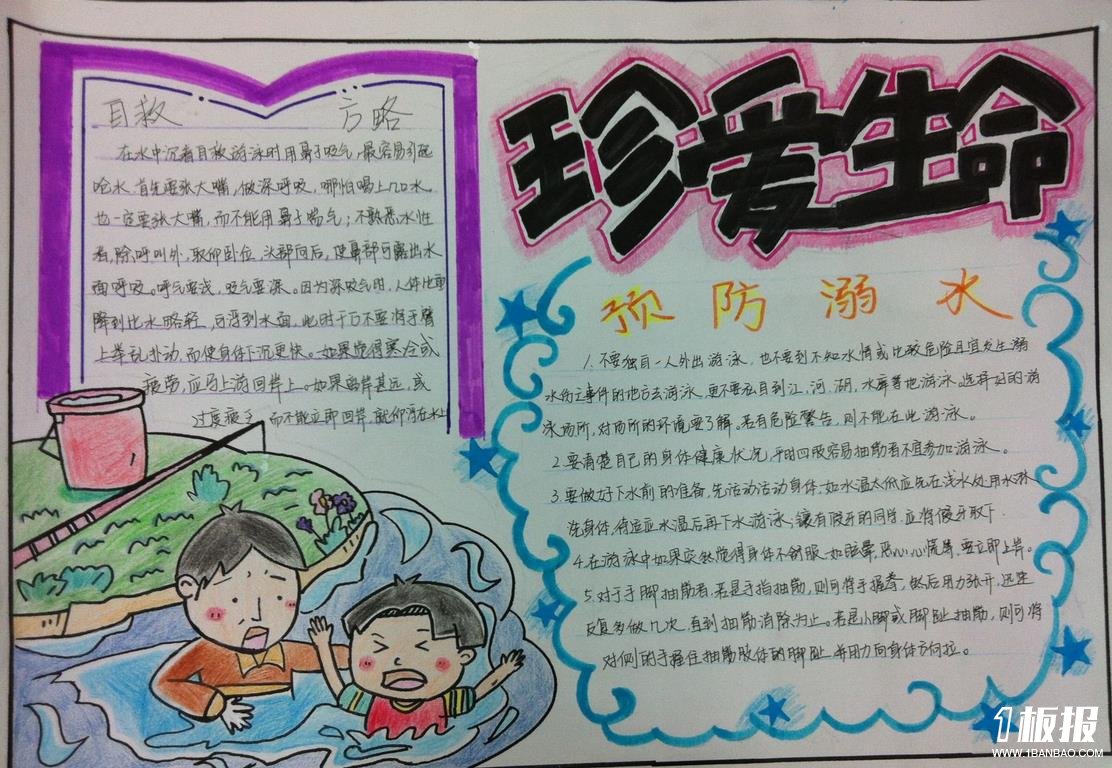 珍爱生命
自救 方略
在水中沉着自救游泳时用鼻子吸气,最容易引起
呛水,首先要张大嘴,做深呼吸,哪怕喝上几口水。
也一定要张大嘴,而不能用鼻子吸气;不熟悉水性
者,除呼叫外,取仰卧位,头部向后,使鼻部可露出水
面呼吸。呼气要浅,吸气要深。因为深吸气时,人体比重
降到比水略轻,可浮到水面,此时千万不要将手臂
上举乱扑动,而使身体下沉更快。如果觉得寒冷或
疲劳,应马上游回岸上。如果离岸甚远,或
过度疲乏 而不能立即回岸,就仰浮在水上
预防溺水
1.不要独自一人外出游泳,也不要到不知水情或比较危险且宜发生溺
水伤亡事件的地方去游泳,更不要私自到江,河,湖,水库等地游泳。选择好的游
泳场所,对场所的环境要了解。若有危险警告,则不能在此游泳。
2.要清楚自己的身体健康状况,平时四肢容易抽筋者不宜参加游泳。
3.要做好下水前的准备,先活动活动身体,如水温太低应先在浅水处用水淋
洗身体,待适应水温后再下水游泳,镶有假牙的同学,应将假牙取下.
4.在游泳中如果突然觉得身体不舒服,如眩晕,恶心,心慌等,要立即上岸。
5.对于手脚抽筋者,若是手指抽筋,则可将手握拳,然后用力张开,迅速
反复多做几次,直到抽筋消除为止。若是小脚或脚趾抽筋,则可将
对侧的手握住抽筋肢体的脚趾,并用力向身体方向拉。
1板报
WWW.1BANBAO.COM